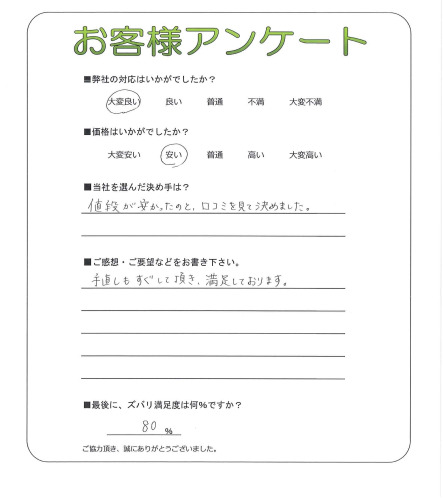 お客様アンケート
■弊社の対応はいかがでしたか？
大変良い 良い 普通 不満 大変不満
■価格はいかがでしたか？
大変安い 安い 普通 高い 大変高い
■当社を選んだ決め手は？
値段が安かったのと、口コミを見て決めました。
■ご感想・ご要望などをお書き下さい。
手直しもすぐして頂き、満足しております。
■最後に、ズバリ満足度は何％ですか？
80 %
ご協力頂き、誠にありがとうございました。